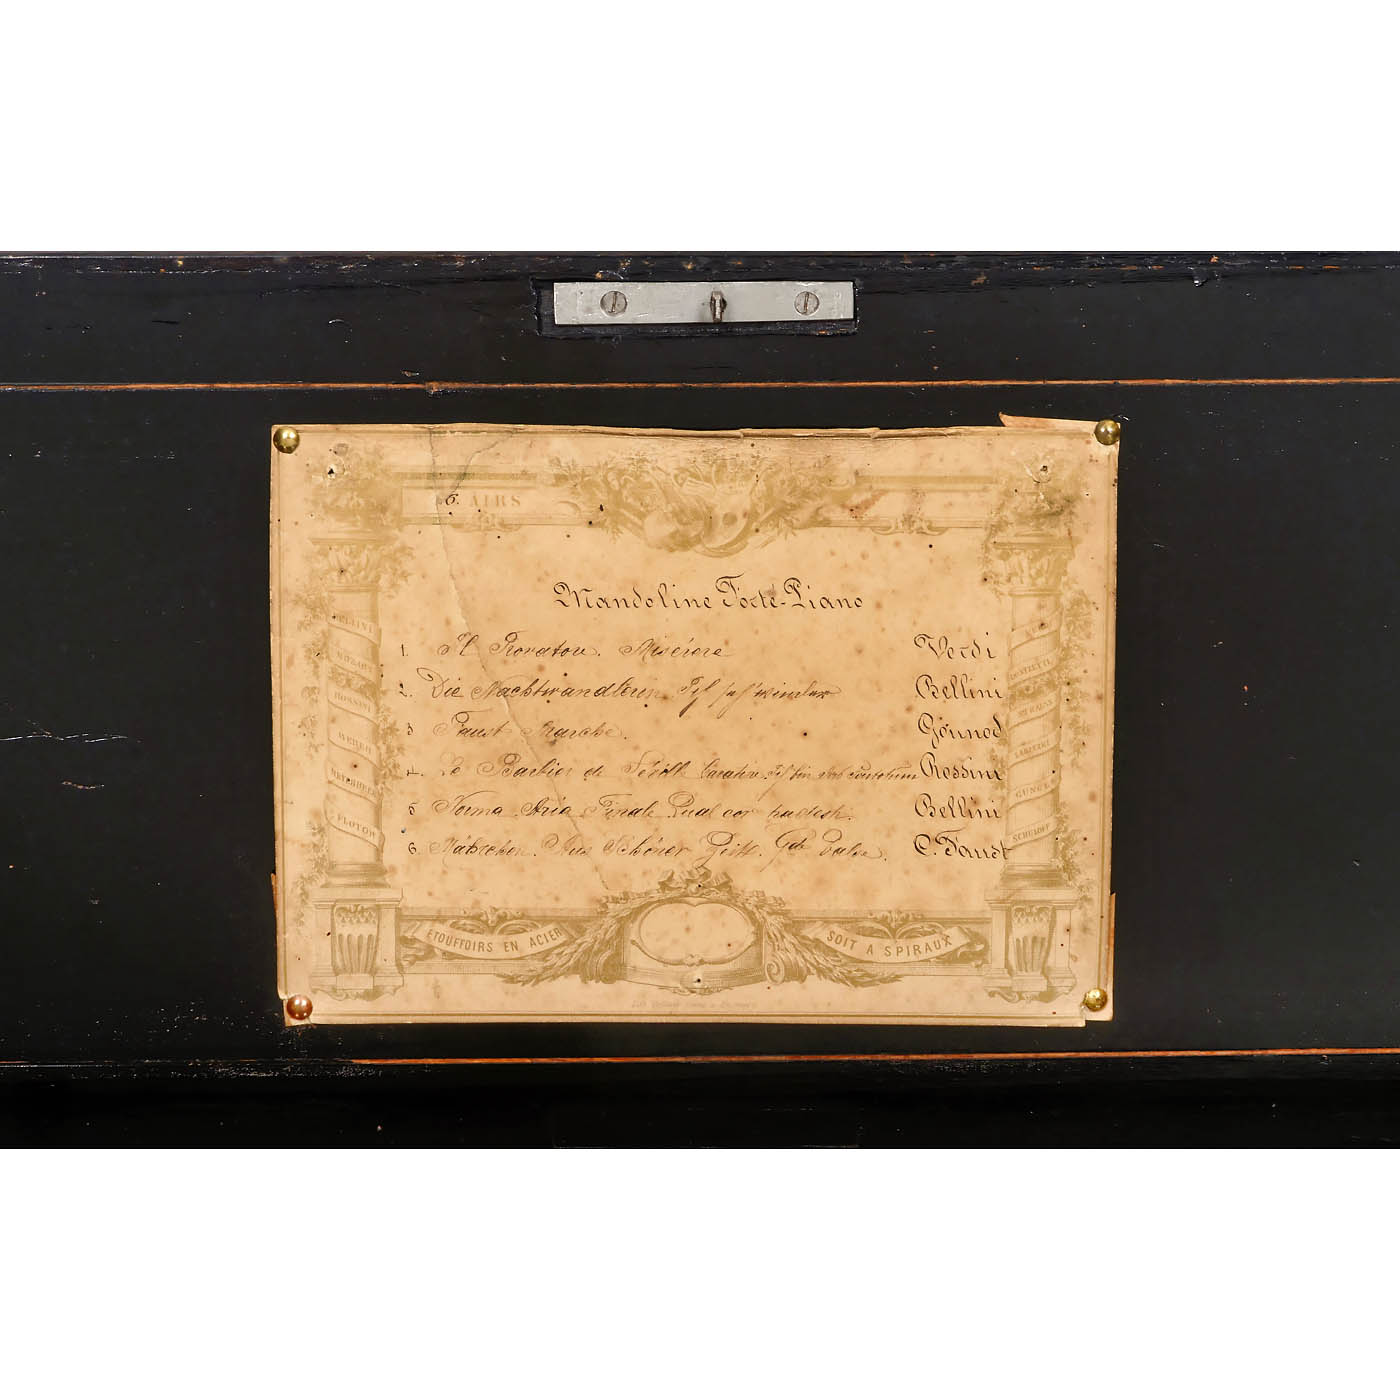 6. AIRS
Mandoline Forte-Piano
1. Il Trovatore. Miserere Verdi
2. Die Nachtwandlerin Ich seh' wieder Bellini
3 Faust Marche. Gounod
4. Le Barbier de Sévill Cavatin. Ich bin das Rossini
5 Norma Aria Finale Qual cor Bellini
6 Mährchen. Aus Schöner Zeit. Gde Valse. C. Faust
BELLINI
MOZART
ROSSINI
WEBER
MEYERBEER
FLOTOW
DONIZETTI
LABITZKI
GUNGL
SCHULHOFF
ETOUFFOIRS EN ACIER
SOIT A SPIRAUX